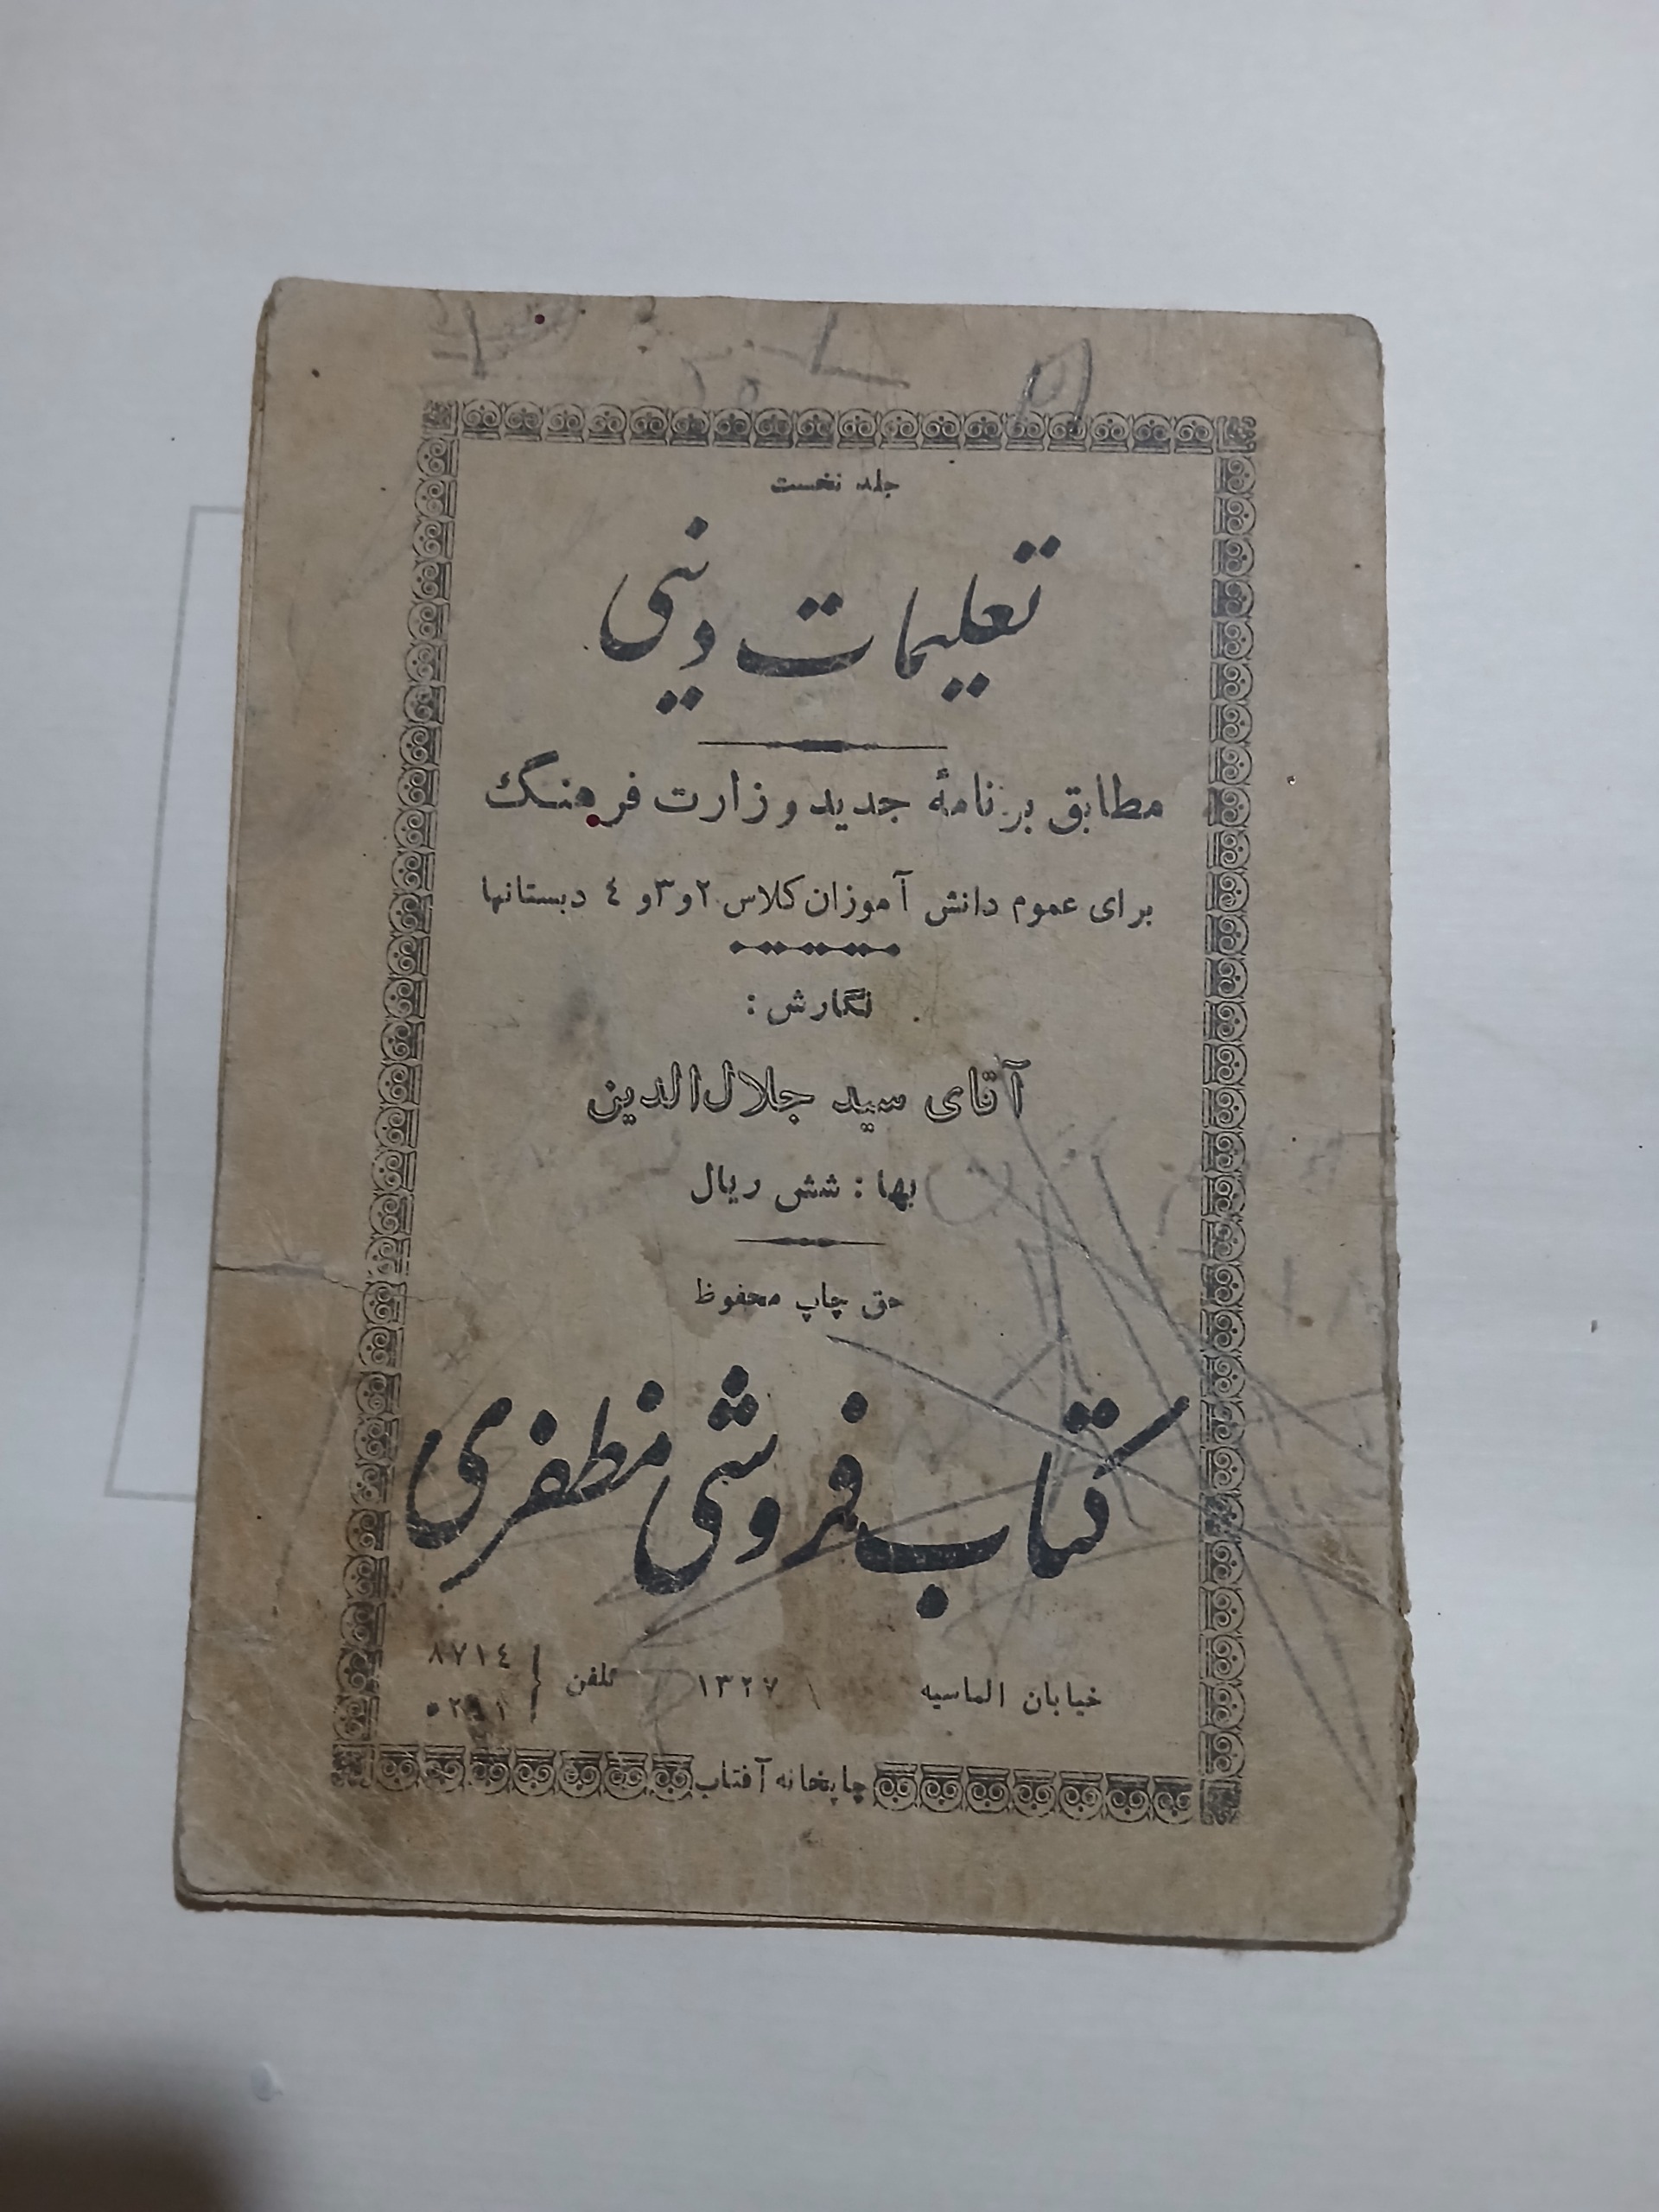 جلد نخست
تعلیمات دینی
مطابق برنامهٔ جدید وزارت فرهنگ
برای عموم دانش آموزان کلاس ۲ و ۳ و ٤ دبستانها
نگارش :
آقای سید جلال‌الدین
بها : شش ریال
حق چاپ محفوظ
کتاب فروشی مظفری
خیابان الماسیه ۱۳۲۷ تلفن ۸۷۱٤
چاپخانه آفتاب